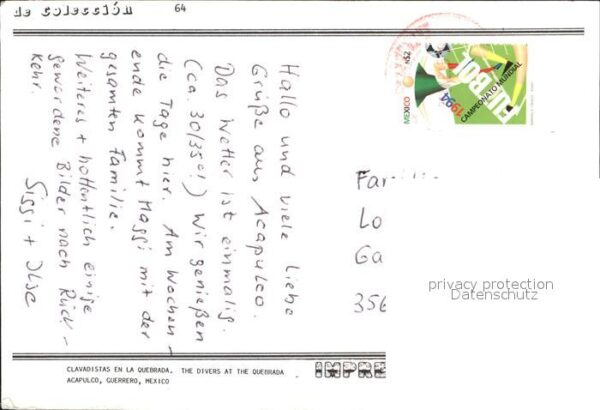 de colección 64
Hallo und viele liebe
Grüße aus Acapulco.
Das Wetter ist einmalig.
(ca. 30/35°!) Wir genießen
die Tage hier. Am Wochen-
ende kommt Maggi mit der
gesamten Familie.
Weiteres + hoffentlich einige
gewordene Bilder nach Rück-
kehr.
Sissi + Ilse
MEXICO N$2
FUTBOL
1994
CAMPEONATO MUNDIAL
Lo
Ga
356
privacy protection
Datenschutz
CLAVADISTAS EN LA QUEBRADA. THE DIVERS AT THE QUEBRADA
ACAPULCO, GUERRERO, MEXICO
IMPRE